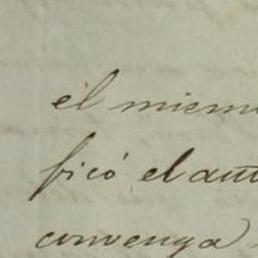 él mismo
ficó el aut
convenga